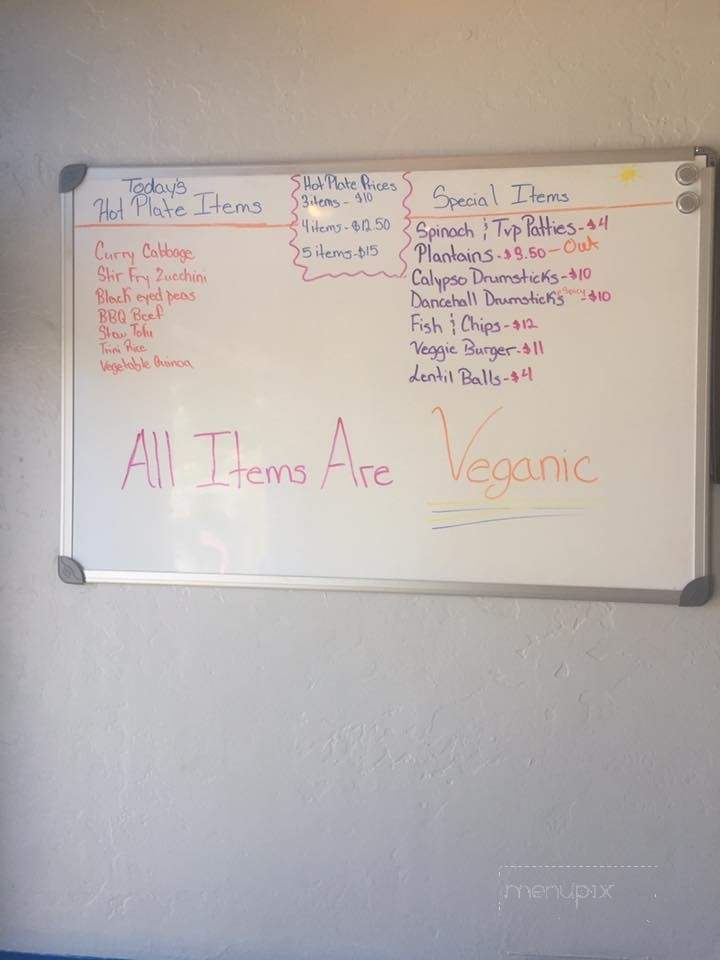 Today's
Hot Plate Items
Curry Cabbage
Stir Fry Zucchini
Black eyed peas
BBQ Beef
Stew Tofu
Trini Rice
Vegetable Quinoa
Hot Plate Prices
3 items - $10
4 items - $12.50
5 items - $15
Special Items
Spinach & Tvp Patties - $4
Plantains - $3.50 - Out
Calypso Drumsticks - $10
Dancehall Drumsticks *Spicy - $10
Fish & Chips - $12
Veggie Burger - $11
Lentil Balls - $4
All Items Are Veganic
menupix